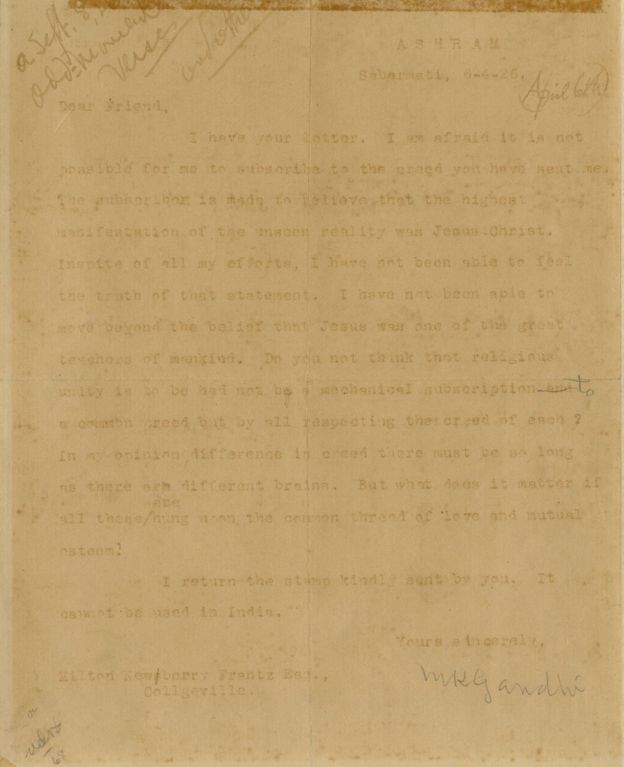 ASHRAM
Sabarmati, 6-4-26.
April 6th
Dear Friend,
I have your letter. I am afraid it is not
possible for me to subscribe to the creed you have sent me.
The subscriber is made to believe that the highest
manifestation of the unseen reality was Jesus Christ.
Inspite of all my efforts, I have not been able to feel
the truth of that statement. I have not been able to
move beyond the belief that Jesus was one of the great
teachers of mankind. Do you not think that religious
unity is to be had not by a mechanical subscription to
a common creed but by all respecting the creed of each ?
In my opinion difference in creed there must be so long
as there are different brains. But what does it matter if
all these/hung upon the common thread of love and mutual
are
esteem!
I return the stamp kindly sent by you. It
cannot be used in India.
Yours sincerely,
MKGandhi
Milton New/berry Frantz Esq.,
Collgeville.